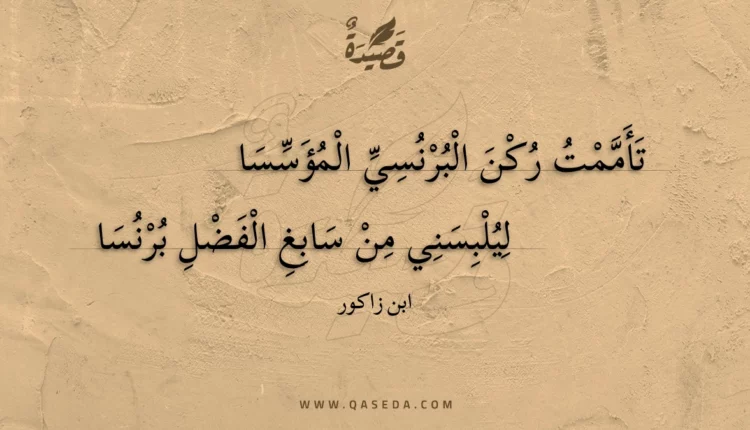 قَصِيدَةٌ
تَأَمَّمْتُ رُكْنَ الْبُرْنُسِيِّ الْمُؤَسِّسَا
لِيُلْبِسَنِي مِنْ سَابِغِ الْفَضْلِ بُرْنُسَا
ابن زاكور
WWW.QASEDA.COM